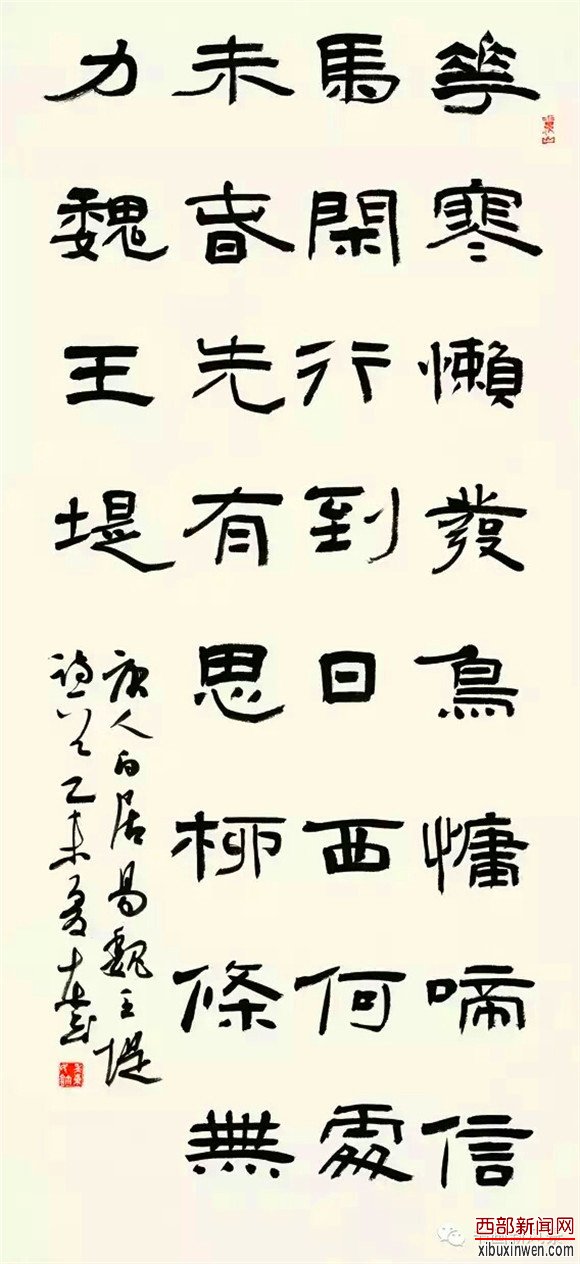 華寒懶發鳥慵啼信
馬閑行到日西何處
未春先有思柳條無
力魏王堤
唐人白居易魏王堤
詩乙未夏
西部新闻网
xibuxinwen.com